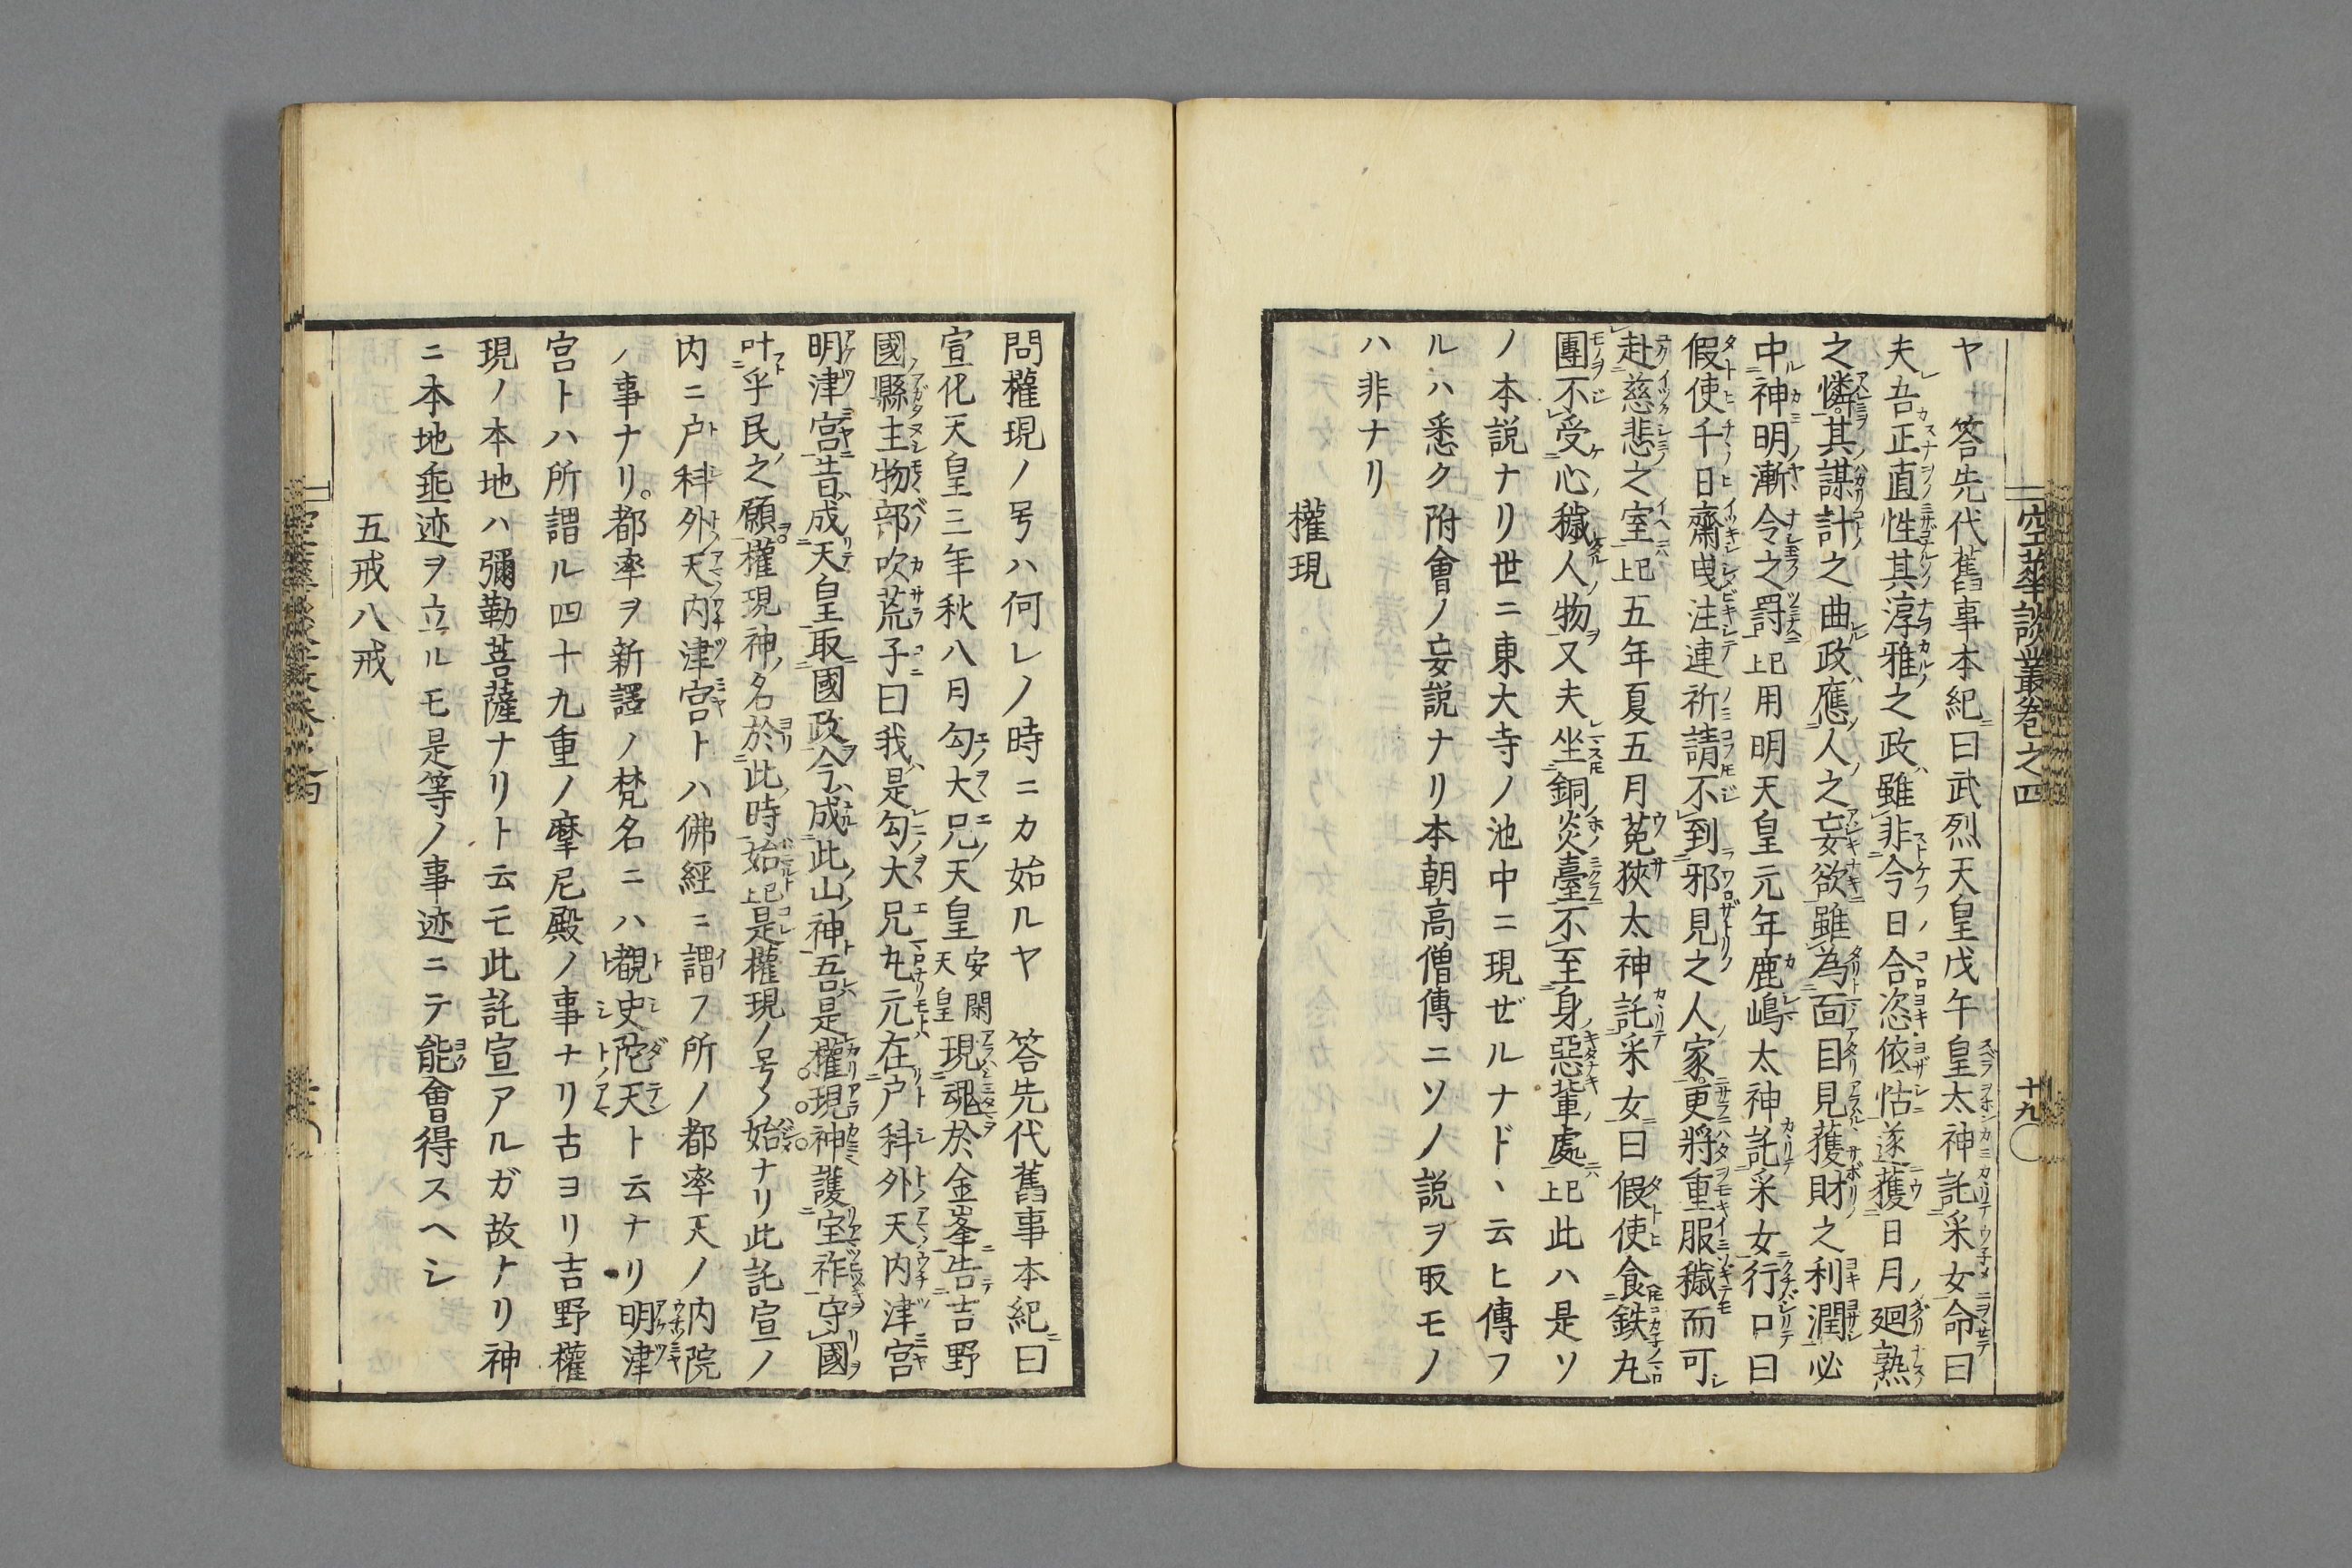 空華談叢巻之四
十九
ヤ 答先代舊事本紀曰武烈天皇戊午皇太神託采女命曰
夫吾正直性其淳雅之政雖非今日合恣依怙遂獲日月廻熟
之憐其謀計之曲政應人之妄欲雖為面目見獲財之利潤必
中神明漸令之罰已上用明天皇元年鹿嶋太神託采女行口曰
假使千日齋曳注連祈請不到邪見之人家更將重服穢而可
赴慈悲之室已上五年夏五月菟狹太神託采女曰假使食鉄丸
團不受心穢人物又夫坐銅炎臺不至身惡輩處已上此ハ是ソ
ノ本説ナリ世ニ東大寺ノ池中ニ現ゼルナド丶云ヒ傳フ
ルハ悉ク附會ノ妄説ナリ本朝高僧傳ニソノ説ヲ取モノ
ハ非ナリ
權現
問權現ノ号ハ何レノ時ニカ始ルヤ 答先代舊事本紀曰
宣化天皇三年秋八月勾大兄天皇安閑天皇現魂於金峯告吉野
國縣主物部吹荒子曰我是勾大兄丸元在戸科外天内津宮
明津宮昔成天皇取國政今成此山神吾是權現神護宝祚守國
叶乎民之願權現神名於此時始已上是權現ノ号ノ始ナリ此託宣ノ
内ニ戸科外天内津宮トハ佛經ニ謂フ所ノ都率天ノ内院
ノ事ナリ都率ヲ新譯ノ梵名ニハ覩史陀天ト云ナリ明津
宮トハ所謂ル四十九重ノ摩尼殿ノ事ナリ古ヨリ吉野權
現ノ本地ハ彌勒菩薩ナリト云モ此託宣アルガ故ナリ神
ニ本地垂迹ヲ立ルモ是等ノ事迹ニテ能會得スヘシ
五戒八戒